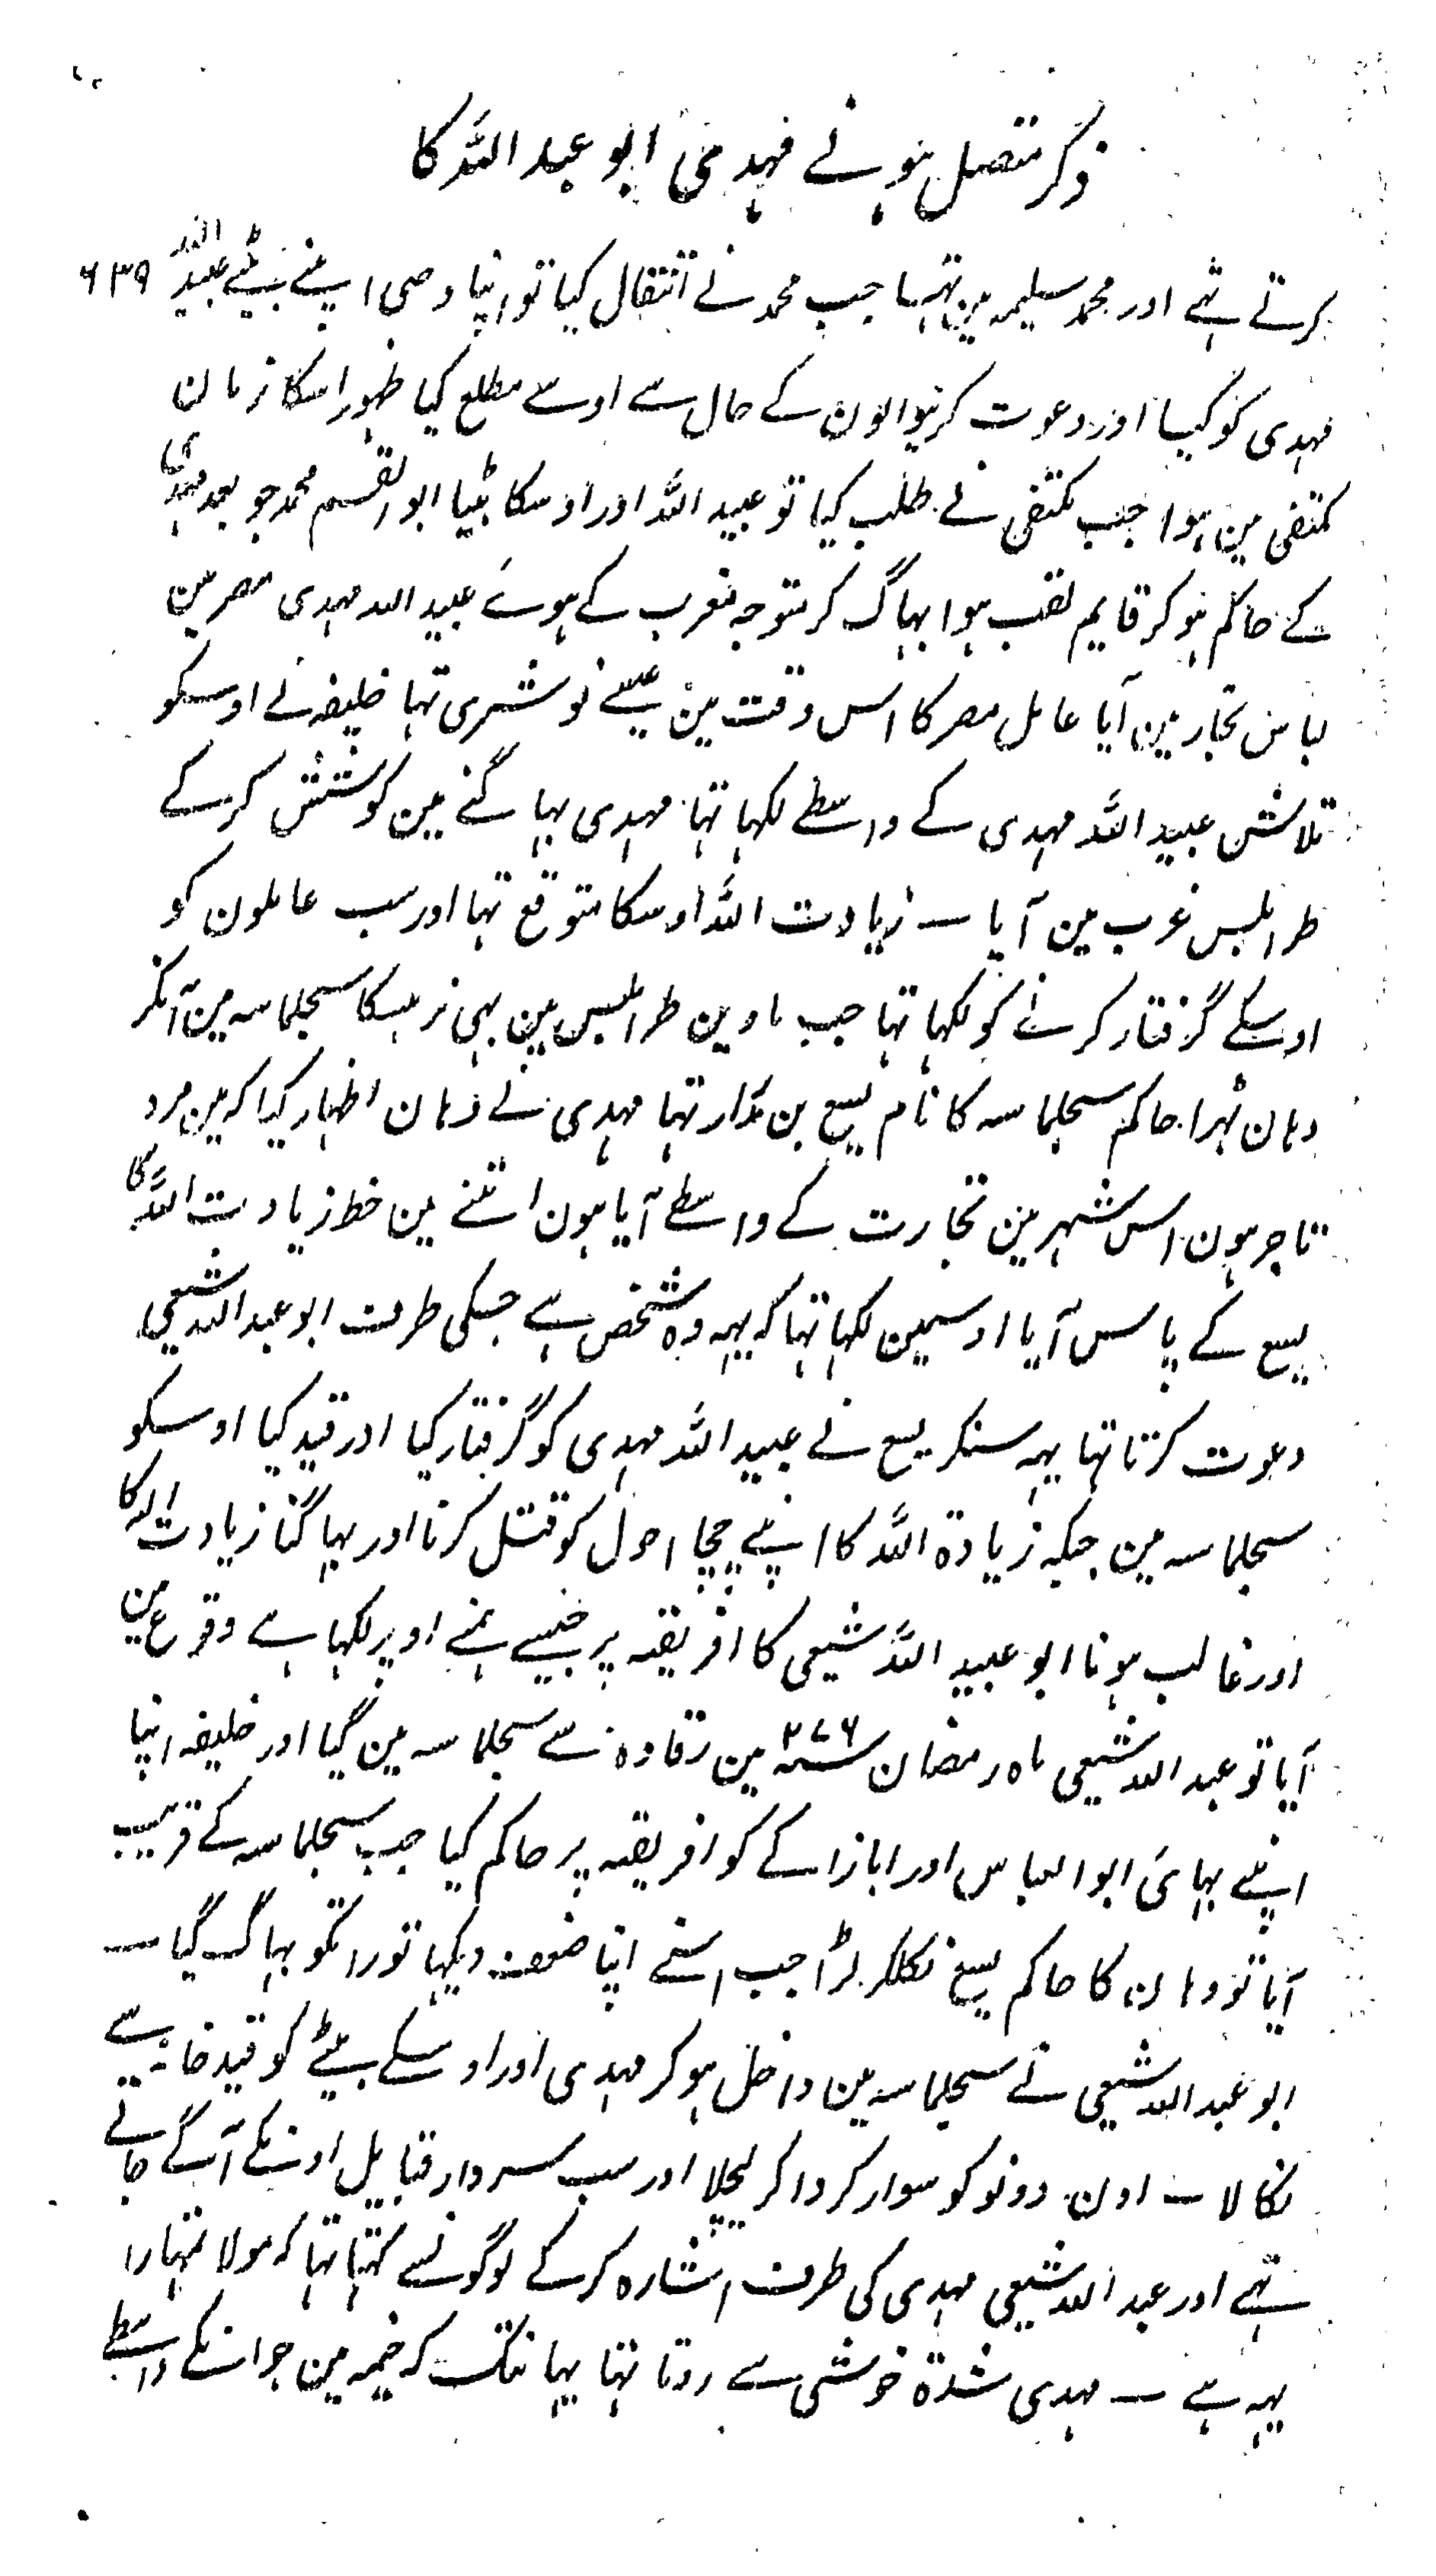 ذکر متصل ہونے مہدی ابو عبد اللہ کا
۶۳۹
کرتے تہے اور محمد سلیمہ مین تہا جب محمد نے انتقال کیا تو اپنا وصی اپنے بیٹے عبید اللہ
مہدی کو کیا اور دعوت کرنیوالون کے حال سے اوسے مطلع کیا ظہور اسکا زمان
مکتفی مین ہوا جب مکتفی نے طلب کیا تو عبید اللہ اور اوسکا بیٹا ابو القسم محمد جو بعد مہدی
کے حاکم ہو کر قایم لقب ہوا بہاگ کر متوجہ مغرب کے ہوئے عبید اللہ مہدی مصر مین
لباس تجار مین آیا عامل مصر کا اس وقت مین عیسے نوشری تہا خلیفہ نے اوسکو
تلاش عبید اللہ مہدی کے واسطے لکہا تہا مہدی بہاگنے مین کوشش کر کے
طرابلس غرب مین آیا — زیادت اللہ اوسکا متوقع تہا اور سب عاملون کو
اوسکے گرفتار کرنے کو لکہا تہا جب طرابلس مین بہی نہ رہسکا سجلماسہ مین آنکر
وہان ٹہرا حاکم سجلماسہ کا نام یسع بن مدرار تہا مہدی نے وہان اظہار کیا کہ مین مرد
تاجر ہون اس شہر مین تجارت کے واسطے آیا ہون اتنے مین خط زیادت اللہ کا
یسع کے پاس آیا اوسمین لکہا تہا کہ یہہ وہ شخص ہے جسکی طرف ابو عبد اللہ شیعی
دعوت کرتا تہا یہہ سنکر یسع نے عبید اللہ مہدی کو گرفتار کیا اور قید کیا اوسکو
سجلماسہ مین جبکہ زیادۃ اللہ کا اپنے چچا احول کو قتل کرنا اور بہاگنا زیادت اللہ کا
اور غالب ہونا ابو عبید اللہ شیعی کا افریقہ پر جیسے ہمنے اوپر لکہا ہے وقوع مین
آیا تو عبد اللہ شیعی ماہ رمضان سنہ ۲۷۶ مین رقادہ سے سجلماسہ مین گیا اور خلیفہ اپنا
اپنے بہائی ابو العباس اور ابازاکے کو افریقہ پر حاکم کیا جب سجلماسہ کے قریب
آیا تو وہان کا حاکم یسع نکلکر لڑا جب اسنے اپنا ضعف دیکہا تو راتکو بہاگ گیا —
ابو عبد اللہ شیعی نے سجلماسہ مین داخل ہو کر مہدی اور اوسکے بیٹے کو قید خانہ سے
نکالا — اون دونو کو سوار کروا کر لیچلا اور سب سردار قبایل اونکے آگے جاتے
تہے اور عبد اللہ شیعی مہدی کی طرف اشارہ کر کے لوگونسے کہتا تہا کہ مولا تمہارا
یہہ ہے — مہدی شدۃ خوشی سے روتا تہا یہانتک کہ خیمہ مین جو انکے واسطے